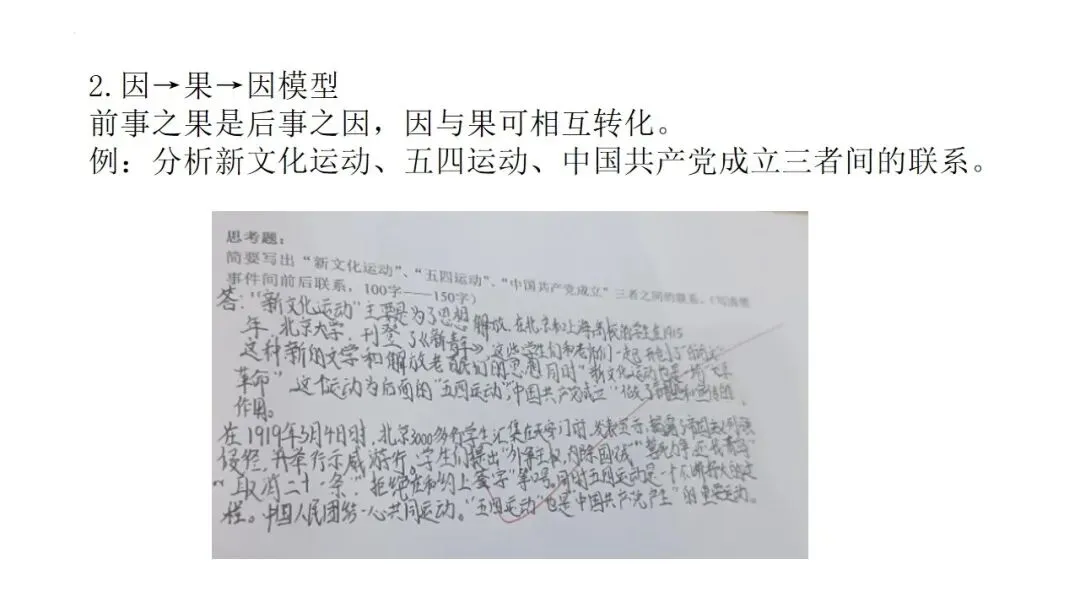 2.因→果→因模型
前事之果是后事之因，因与果可相互转化。
例：分析新文化运动、五四运动、中国共产党成立三者间的联系。
思考题：
简要写出“新文化运动”、“五四运动”、“中国共产党成立”三者之间的联系。（写清楚
事件间前后联系，100字——150字）
答：“新文化运动”主要是为了思想解放，在北京和上海 学生在1915
年，北京大学，刊登了《新青年》，这些学生们和老师们一起开创了
这种新的文学和解放老百姓们的思想同时“新文化运动也是一场
革命”这个运动为后面的“五四运动”，“中国共产党成立”做了 和 的
作用。
在1919年5月4日时，北京3000多名学生汇集在天安门前，发表宣示，
侵经，并举行示威游行。学生们提出“外争主权，内除国贼”“ 还我青岛”
“取消二十一条”“拒绝在和约上签字”等口号，同时五四运动是一个 的过
程。中国人民团结一心共同运动。“五四运动”也是“中国共产党产生”的重要运动。